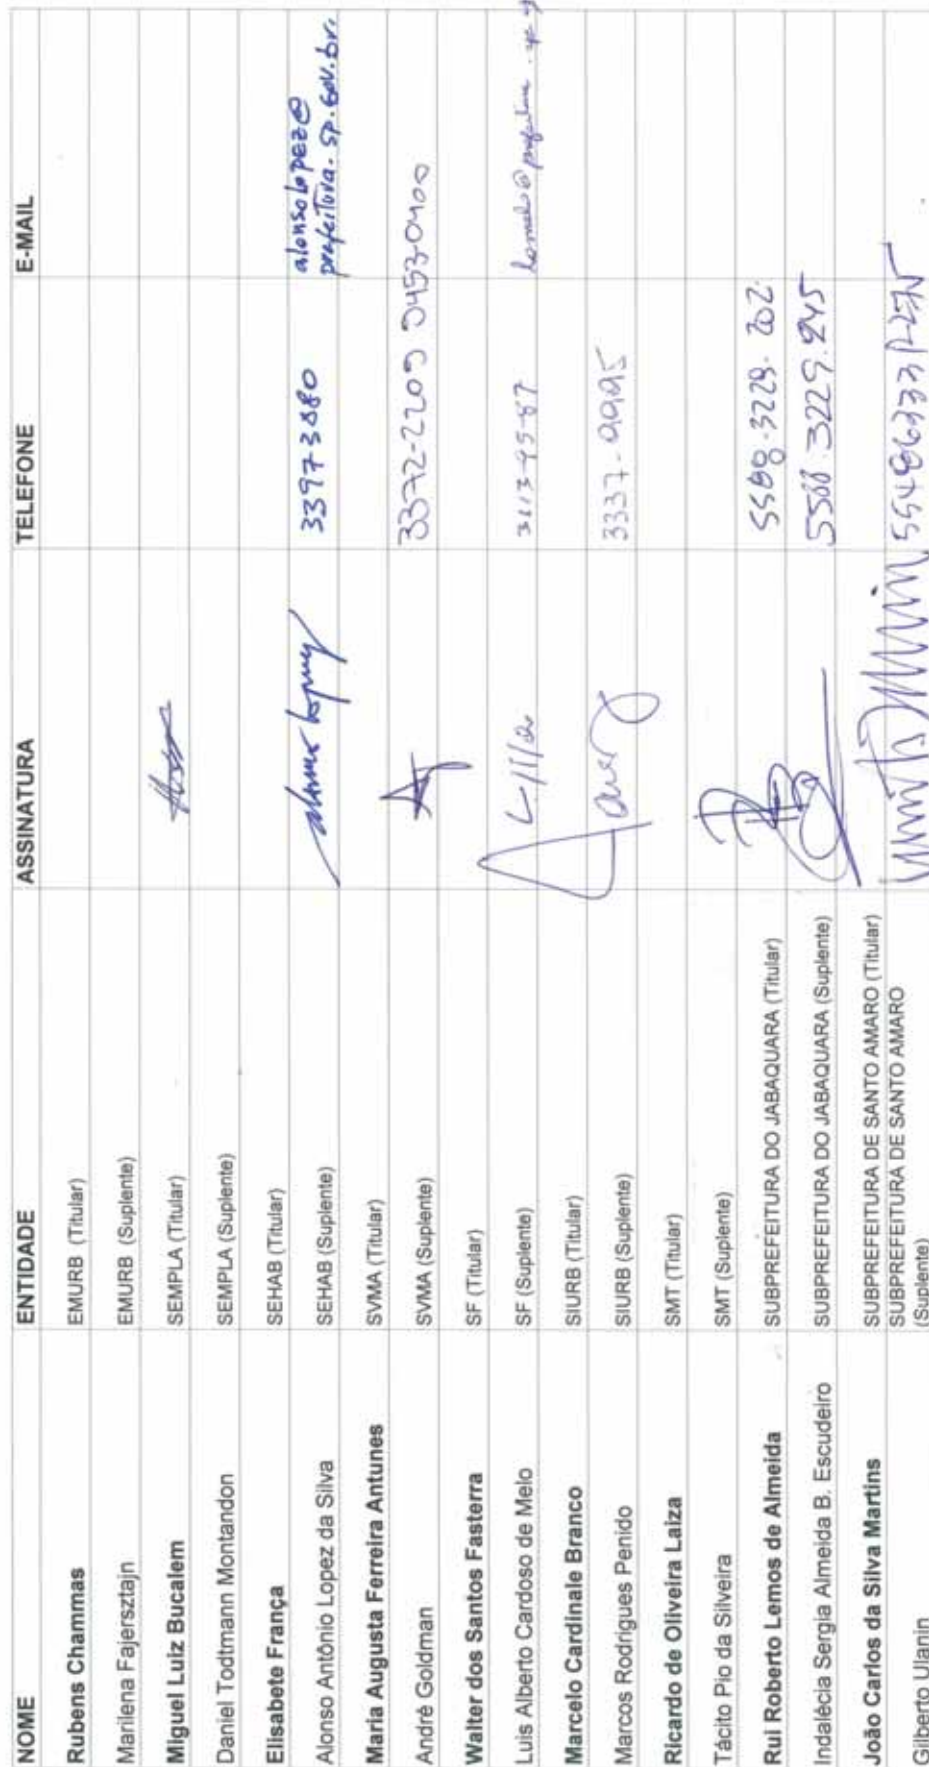 NOME ENTIDADE ASSINATURA TELEFONE E-MAIL
Rubens Chammas EMURB (Titular)
Marilena Fajersztajn EMURB (Suplente)
Miguel Luiz Bucalem SEMPLA (Titular)
Daniel Todtmann Montandon SEMPLA (Suplente)
Elisabete França SEHAB (Titular)
Alonso Antônio Lopez da Silva SEHAB (Suplente) 33973880 alonsolopez@
prefeitura.sp.gov.br.
Maria Augusta Ferreira Antunes SVMA (Titular)
André Goldman SVMA (Suplente) 3372-2209
Walter dos Santos Fasterra SF (Titular)
Luis Alberto Cardoso de Melo SF (Suplente)
Marcelo Cardinale Branco SIURB (Titular)
Marcos Rodrigues Penido SIURB (Suplente) 3337-9995
Ricardo de Oliveira Laiza SMT (Titular)
Tácito Pio da Silveira SMT (Suplente)
Rui Roberto Lemos de Almeida SUBPREFEITURA DO JABAQUARA (Titular)
Indalécia Sergia Almeida B. Escudeiro SUBPREFEITURA DO JABAQUARA (Suplente)
João Carlos da Silva Martins SUBPREFEITURA DE SANTO AMARO (Titular)
SUBPREFEITURA DE SANTO AMARO
Gilberto Ulanin (Suplente)